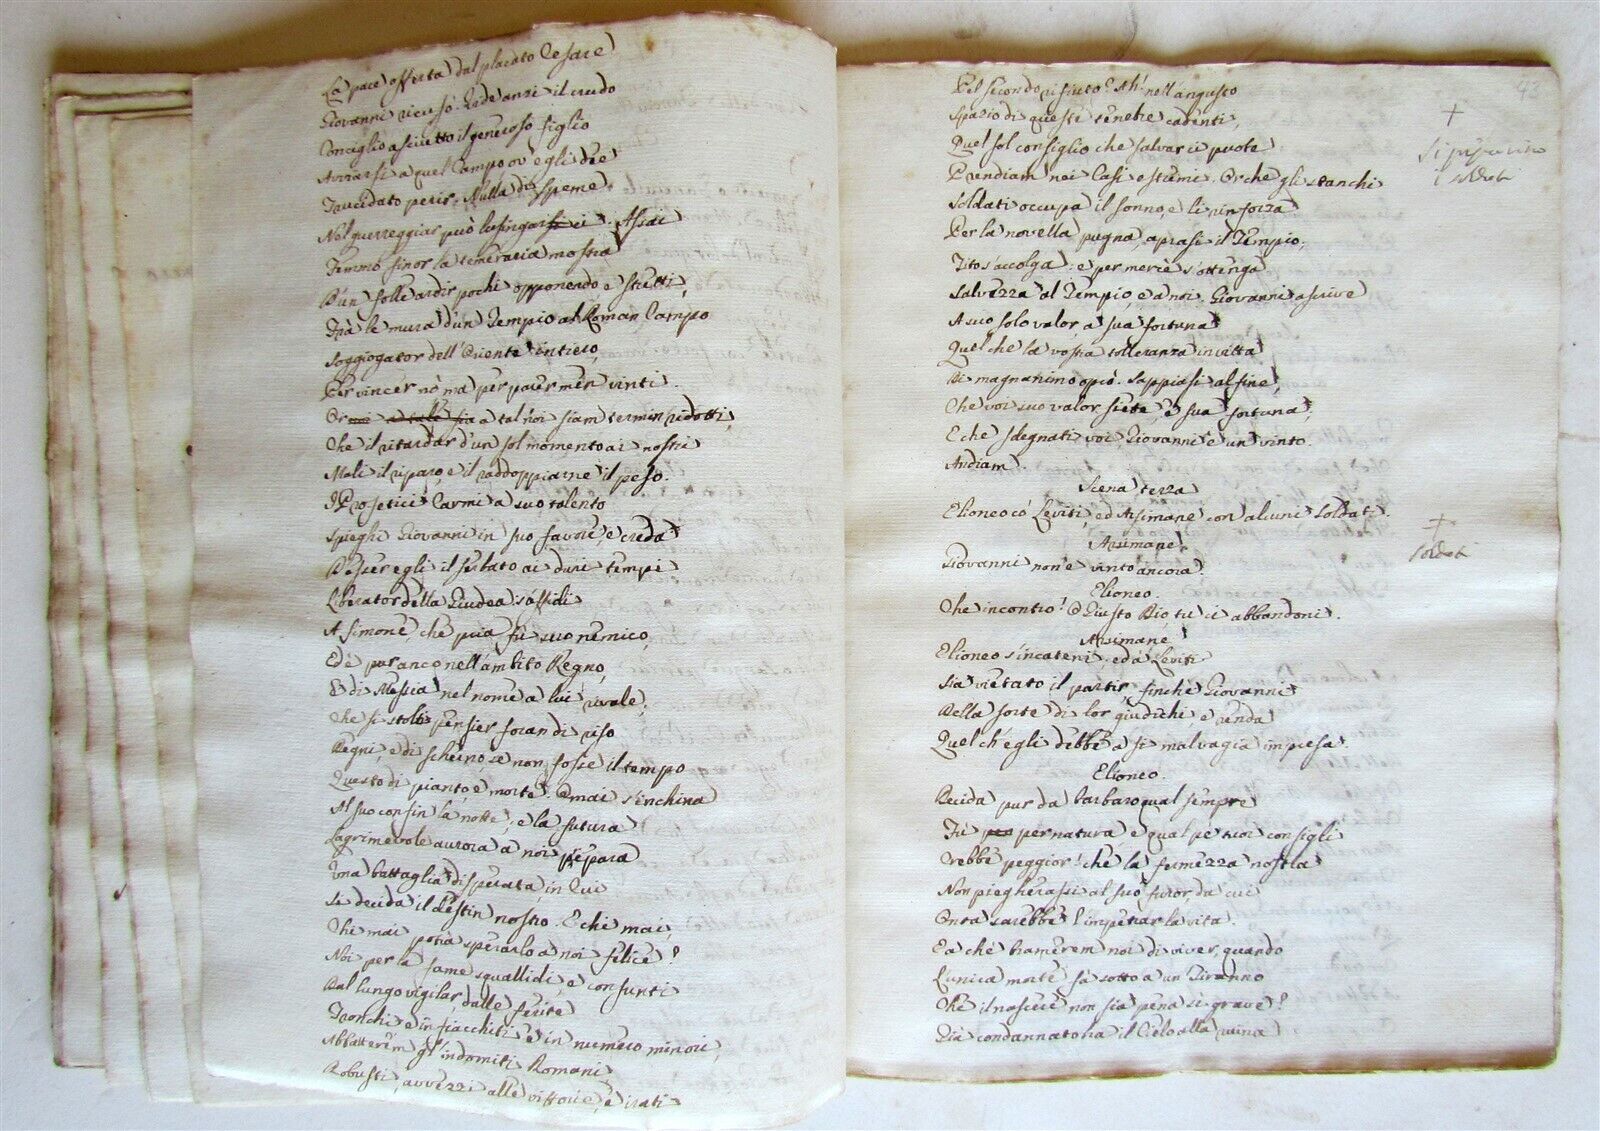 La pace offerta dal placato Cesare
Giovanni ricusò. Ride anzi il crudo
Consiglio a sciutto il generoso figlio
Avviarsi a quel Campo ov'egli dee
Trucidato perir. Nulla di speme
Nel guerreggiar può lusingarsi ci. Assai
Femmo finor la temeraria mostra
D'un folle ardir pochi opponendo e stretti,
Frà le mura d'un Tempio al Roman Campo
Soggiogator dell'Oriente intiero,
Per vincer nò ma per parer men vinti.
Or noi a tale sia a tal noi siam termin ridotti,
Che il ritardar d'un sol momento ai nostri
Mali il riparo, è il raddoppiarne il peso.
I Profetici Carmi a suo talento
Spieghi Giovanni in suo favore, e creda
D'esser egli il serbato ai duri tempi
Liberator della Giudea s'affidi
A Simone, che pria fù suo nemico,
Ed è pur anco nell'ambito Regno,
E di Messia nel nome a lui rivale;
Che sì stolti pensier foran di riso
Degni, e di scherno se non fosse il tempo
Questo di pianto, e morte. Omai s'inchina
Al suo confin la notte, e la futura
Lagrimevole aurora a noi prepara
Una battaglia disperata, in cui
Si decida il destin nostro. E chi mai,
Chi mai potrà sperarlo a noi felice?
Noi per la fame squallidi, e consunti
Dal lungo vigilar, dalle ferite
Tronchi e infiacchiti e in numero minori,
Abbatterem gl'indomiti Romani
Robusti, avvezzi alle vittorie, e irati
93
Pel secondo rifiuto? Ah! nell'angusto
Spazio di queste tenebre cadenti,
Quel sol consiglio che salvar ci puote
Prendiam nei Casi estremi. Or che gli stanchi
Soldati occupa il sonno, e li rinforza
Per la novella pugna, aprasi il Tempio;
Tito s'accolga: e per mercè s'ottenga
Salvezza al Tempio, e a noi. Giovanni ascrive
A suo solo valor, a sua fortuna
Quel che la vostra tolleranza invitta
Di magnanimo oprò. Sappiasi alfine,
Che voi suo valor siete, e sua fortuna,
E che sdegnati voi, Giovanni è un vinto.
Andiam.
+
i soldati
Scena terza
Elioneo có Leviti, ed Arsimane con alcuni soldati.
+
soldati
Arsimane
Giovanni non è vinto ancora.
Elioneo.
Che incontro! O Giusto Dio, tu ci abbandoni.
Arsimane
Elioneo s'incateni; ed à Leviti
Sia vietato il partir, finchè Giovanni
Della sorte di lor giudichi e renda
Quel ch'egli debbe a sì malvagia impresa.
Elioneo.
Decida pur da barbaro qual sempre
Fù per per natura, e qual pe tuoi consigli
Crebbe peggior! chè la fermezza nostra
Non piegherassi al suo furor, da cui
Onta sarebbe l'impetrar la vita.
E a che bramerem noi di viver, quando
L'unica morte fà sotto a un Tiranno
Che il nascere non sia pena sì grave?
Già condannato ha il Cielo alla ruina